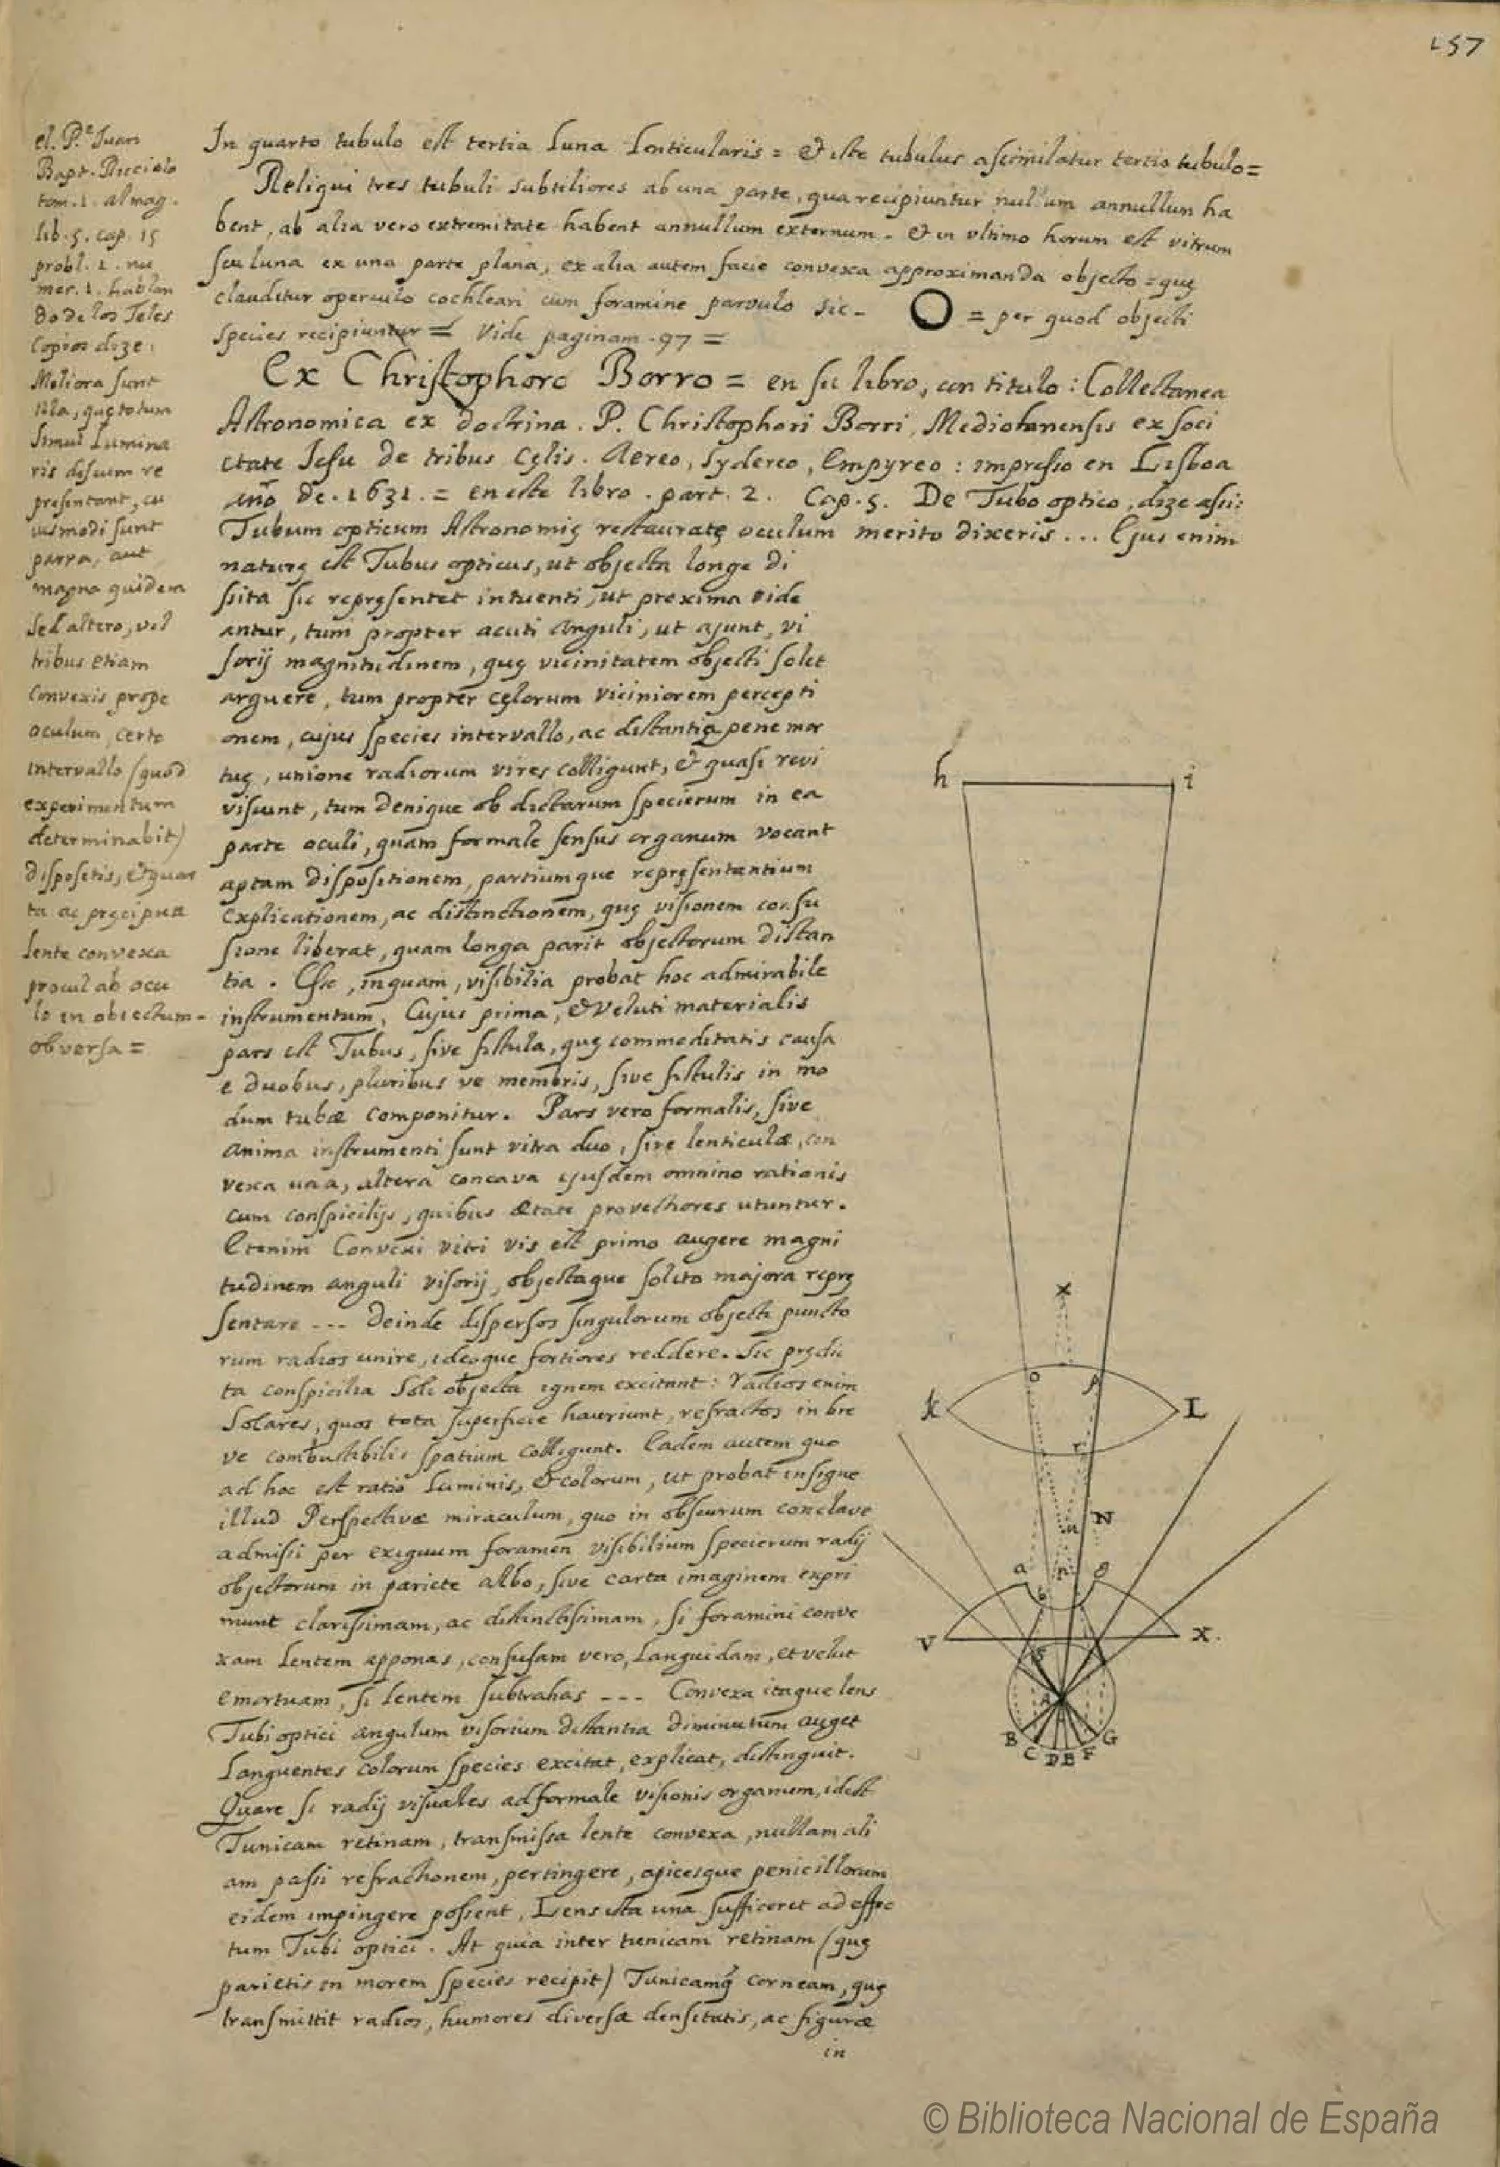 157
el. P.e Juan
Bapt. Ricciolo
tom. 1. almag.
lib. 9. cap. 15
probl. 1. nu
mer. 1. hablan
do de los Teles
copios dize:
Meliora sunt
illa, quę totum
simul Lumina
ris discum re
presentant, cu
iusmodi sunt
parva, aut
magna quidem
sed altero, vel
tribus etiam
convexis prope
oculum, certo
intervallo (quod
experimentum
determinabit)
dispositis, et quar
ta ac pręcipua
lente convexa
procul ab ocu
lo in obiectum
obversa =
In quarto tubulo est tertia Luna Lenticularis = & iste tubulus assimilatur tertio tubulo =
Reliqui tres tubuli subtiliores ab una parte, qua recipiuntur nullum annullum ha
bent, ab alia vero extremitate habent annullum externum. & in ultimo horum est vitrum
seu luna ex una parte plana, ex alia autem facie convexa approximanda objecto = quę
clauditur operculo cochleari cum foramine parvulo sic - O = per quod objecti
species recipiuntur = Vide paginam. 97 =
Ex Christophoro Borro = en su libro, con titulo: Collectanea
Astronomica ex doctrina. P. Christophori Borri, Mediolanensis ex soci
etate Jesu de tribus Cęlis. Aereo, Sydereo, Empyreo: impresso en Lisboa
año de. 1631. = en este libro. part. 2. Cap. 5. De Tubo optico, dize assi:
Tubum opticum Astronomię restauratę oculum merito dixeris ... Ejus enim
naturę est Tubus opticus, ut objecta longe di
ssita sic repręsentet intuenti, ut proxima vide
antur, tum propter acuti anguli, ut ajunt, vi
sorij magnitudinem, quę vicinitatem objecti solet
arguere, tum propter cęlorum viciniorem percepti
onem, cujus species intervallo, ac distantia pene mor
tuę, unione radiorum vires colligunt, & quasi revi
viscunt, tum denique ob dictarum specierum in ea
parte oculi, quam formale sensus organum vocant
aptam dispositionem, partiumque repręsentantium
explicationem, ac distinctionem, quę visionem confu
sione liberat, quam longa parit objectorum distan
tia. Esse, inquam, visibilia probat hoc admirabile
instrumentum, Cujus prima, & veluti materialis
pars est Tubus, sive fistula, quę commoditatis causa
e duobus, pluribus ve membris, sive fistulis in mo
dum tubæ componitur. Pars vero formalis, sive
anima instrumenti sunt vitra duo, sive lenticulæ, con
vexa una, altera concava ejusdem omnino rationis
cum conspicilijs, quibus ætate provectiores utuntur.
Etenim Convexi vitri vis est primo augere magni
tudinem anguli visorij, objectaque solito majora reprę
sentare --- Deinde dispersos singulorum objecti puncto
rum radios unire, ideoque fortiores reddere. Sic prędic
ta conspicilia Soli objecta ignem excitant: radios enim
Solares, quos tota superficie hauriunt, refractos in bre
ve combustibilis spatium colligunt. Eadem autem quo
ad hoc est ratio Luminis, & colorum, ut probat insigne
illud Perspectivæ miraculum, quo in obscurum conclave
admissi per exiguum foramen visibilium specierum radij
objectorum in pariete albo, sive carta imaginem expri
munt clarissimam, ac distinctissimam, si foramini conve
xam Lentem apponas, confusam vero, Languidam, et velut
emortuam, si Lentem subtrahas --- Convexa itaque lens
Tubi optici angulum visorium distantia diminutum auget
Languentes colorum species excitat, explicat, distinguit.
Quare si radij visuales ad formale visionis organum, idest
Tunicam retinam, transmissa lente convexa, nullam ali
am passi refractionem, pertingere, apicesque penicillorum
eidem impingere possent, Lens ista una sufficeret ad effec
tum Tubi optici. At quia inter tunicam retinam (quę
parietis in morem species recipit) Tunicamq̃ corneam, quę
transmittit radios, humores diversæ densitatis, ac figuræ
in
h i
x
o p
k L
r
N
n
a p g
b
V X.
S
A
B C D E F G
© Biblioteca Nacional de España